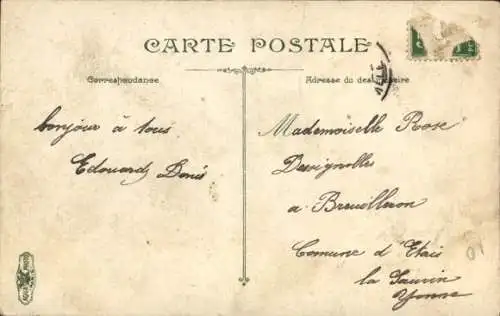 CARTE POSTALE
Correspondance
Adresse du destinataire
bonjour à tous
Edouard Denis
Mademoiselle Rose
Desvignolles
a Breuilleron
Comune d'Etais
la Sauvin
Yonne